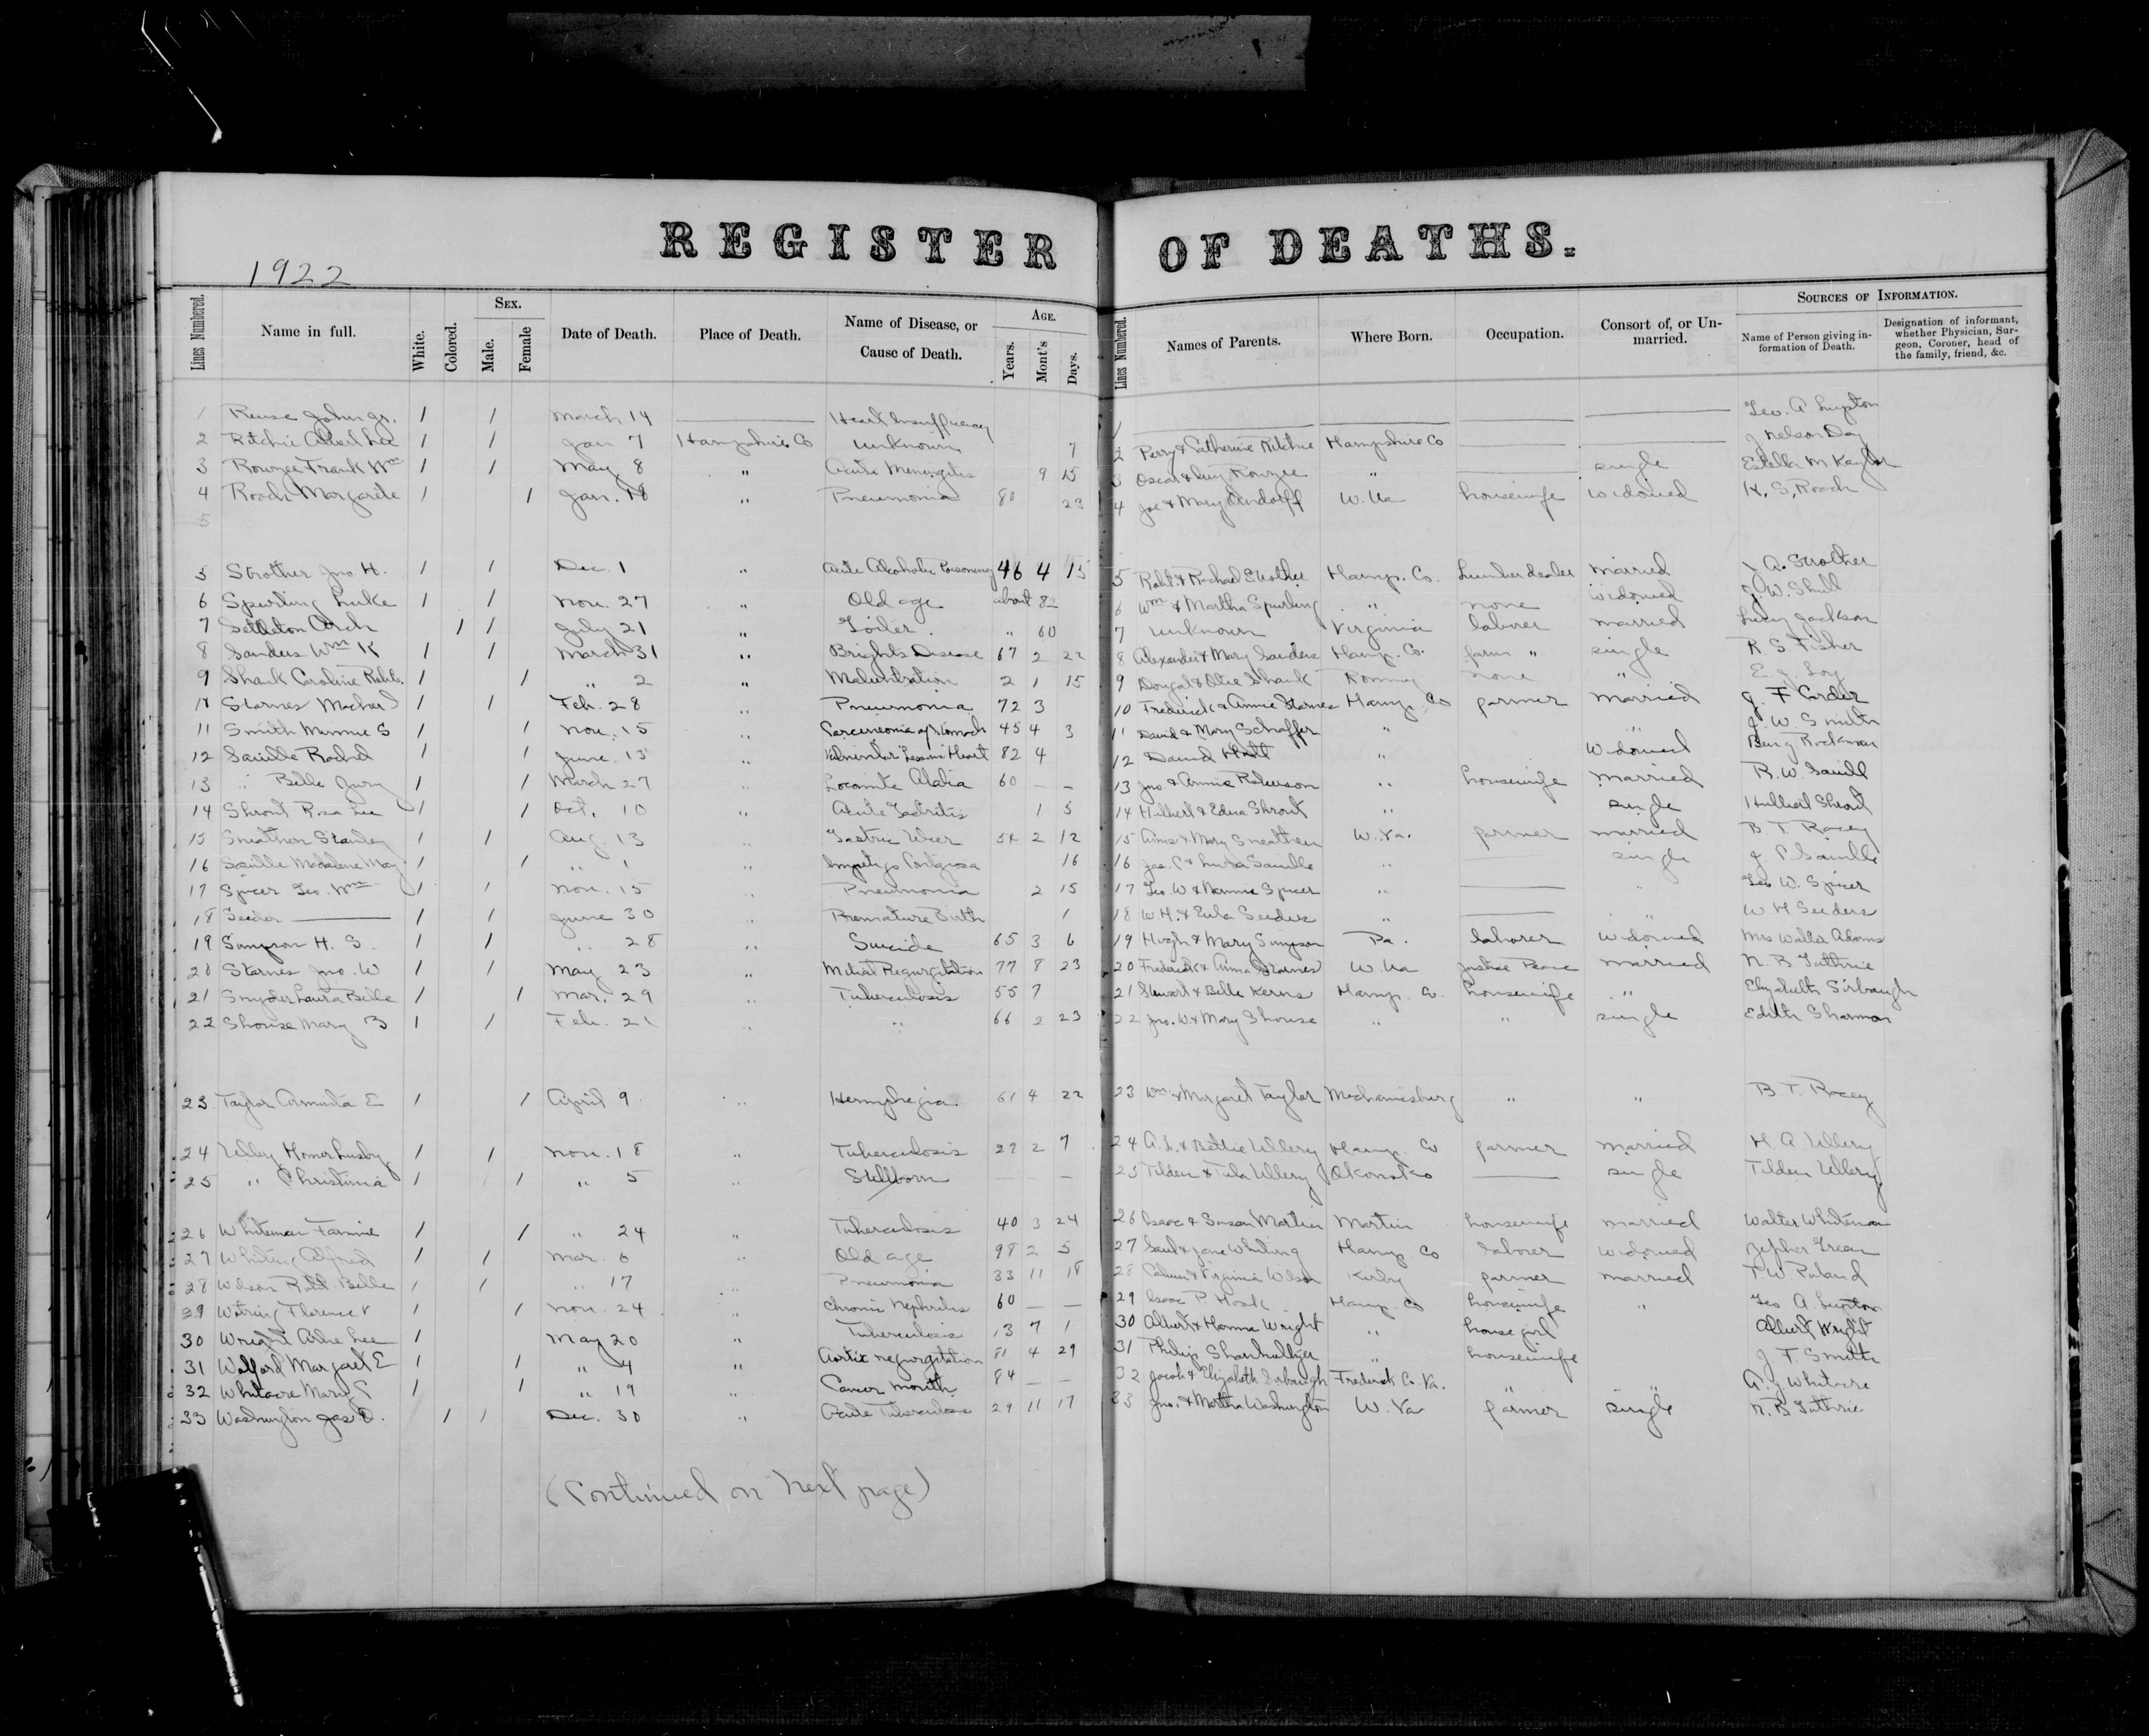 REGISTER OF DEATHS.
1922
Lines Numbered. Name in full. White. Colored. Sex. Male. Female Date of Death. Place of Death. Name of Disease, or Cause of Death. Age. Years. Mont's Days. Lines Numbered. Names of Parents. Where Born. Occupation. Consort of, or Unmarried. Sources of Information. Name of Person giving information of Death. Designation of informant, whether Physician, Surgeon, Coroner, head of the family, friend, &c.
1 John Jr. 1 1 March 14 Heart Insufficiency 1 Geo. A. Lupton
2 Ritchie Lee 1 1 Jan 7 Hampshire Co unknown 7 2 Perry & Catherine Ritchie Hampshire Co J Nelson Day
3 Rowzee Frank Wm 1 1 May 8 " Acute Meningitis 9 15 3 Oscar & Rowzee " single Estella M Kaylor
4 Roach Margarite 1 1 Jan. 18 " Pneumonia 80 23 4 Joe & Mary Orndorff W. Va housewife widowed H. S. Roach
5
5 Strother Jno H. 1 1 Dec. 1 " Acute Alcoholic Poisoning 46 4 15 5 Robt. & Rachael Strother Hamp. Co. Lumber dealer married A. Strother
6 Spurling Luke 1 1 Nov. 27 " Old age about 82 6 Wm & Martha Spurling " none widowed J. W. Shull
7 Settleton Arch 1 1 July 21 " Goiter. " 60 7 unknown Virginia laborer married Lucy Jackson
8 Sanders Wm K 1 1 March 31 " Brights Disease 67 2 22 8 Alexander & Mary Sanders Hamp. Co. farm " single R. S. Fisher
9 Shank Caroline Rebt. 1 1 " 2 " Malnutrition 2 1 15 9 Dougal & Otie Shank Romney none " E. J. Loy
10 Starnes 1 1 Feb. 28 " Pneumonia 72 3 10 Frederick & Annie Starnes Hamp. Co farmer married J. F. Corder
11 Smith Minnie S 1 1 Nov. 15 " Carcinomia of Stomach 45 4 3 11 David & Mary Schaffer " " J. W. Smith
12 Saville Rachel 1 1 June. 13 " Heart 82 4 12 David " Widowed Benj Rockman
13 " Belle Jury 1 1 March 27 " Locomite Ataxia 60 — — 13 Jno & Annie Roberson " housewife married R. W. Saville
14 Shrout Rosa Lee 1 1 Oct. 10 " Acute Gastritis 1 5 14 Hulbert & Edna Shrout " single Shrout
15 Smeathern Stanley 1 1 Aug. 13 " Gastric Ulcer 54 2 12 15 Amos & Mary Smeathern W. Va. farmer married B T. Racey
16 Saville Madalene May 1 1 " 1 " Impetigo 16 16 Jas. C & Saville " single J C Saville
17 Spicer Geo. Wm 1 1 Nov. 15 " Pneumonia 2 15 17 Geo. W & Nannie Spicer " " Geo W. Spicer
18 Seeder 1 1 June 30 " Premature Birth 1 18 W H. & Eula Seeders " " W H Seeders
19 Simpson H. S. 1 1 " 28 " Suicide 65 3 6 19 Hugh & Mary Simpson Pa. laborer widowed Mrs Walter Adams
20 Starnes Jno. W 1 1 May 23 " Mitral Regurgitation 77 8 23 20 Frederick & Anna Starnes W. Va Justice Peace married N. B Guthrie
21 Snyder Laura Belle 1 1 Mar. 29 " Tuberculosis 55 7 21 Stewart & Belle Kerns Hamp. Co. housewife " Elizabeth Sirbaugh
22 Shouse Mary B 1 1 Feb. 21 " " 66 2 23 22 Jno. W & Mary Shouse " " single Edith Sherman
23 Taylor Arminta E 1 1 April 9 " Hemiphegia 61 4 22 23 Wm & Margaret Taylor Mechanicsburg " " B T. Racey
24 Homer Lusby 1 1 Nov. 18 " Tuberculosis 27 2 7 24 A. L. & Bettie Ullery Hamp. Co farmer married H A Ullery
25 " Christinia 1 1 " 5 " Stillborn — — — 25 Tilden & Tula Ullery Okonoko single Tilden Ullery
26 Whiteman Fannie 1 1 " 24 " Tuberculosis 40 3 24 26 Isaac & Susan Martin Martin housewife married Walter Whiteman
27 Whiting Alfred 1 1 Mar. 6 " Old age 98 2 5 27 Saul & Jane Whiting Hamp. Co laborer widowed Zepher Green
28 Wilson Belle 1 1 " 17 " Pneumonia 33 11 18 28 & Virginia Wilson Kirby farmer married T. W. Poland
29 Florence V 1 1 Nov. 24 " Chronic Nephritis 60 — — 29 Isaac P. Hamp. Co housewife " Geo A. Lupton
30 Wright Lee 1 May 20 " Tuberculosis 13 7 1 30 Albert & Wright " house girl Albert Wright
31 Wolford Margaret E 1 1 " 4 " Aortic regurgitation 81 4 29 31 Philip " housewife J T. Smith
32 Whitacre Mary C 1 1 " 19 " Cancer mouth 84 — — 32 Jacob & Elizabeth Sirbaugh Frederick Co. Va. " " A. J Whitacre
33 Washington Jas D. 1 1 Dec. 30 " Acute Tuberculosis 29 11 17 33 Jno. & Martha Washington W. Va farmer single N. B Guthrie
(Continued on next page)